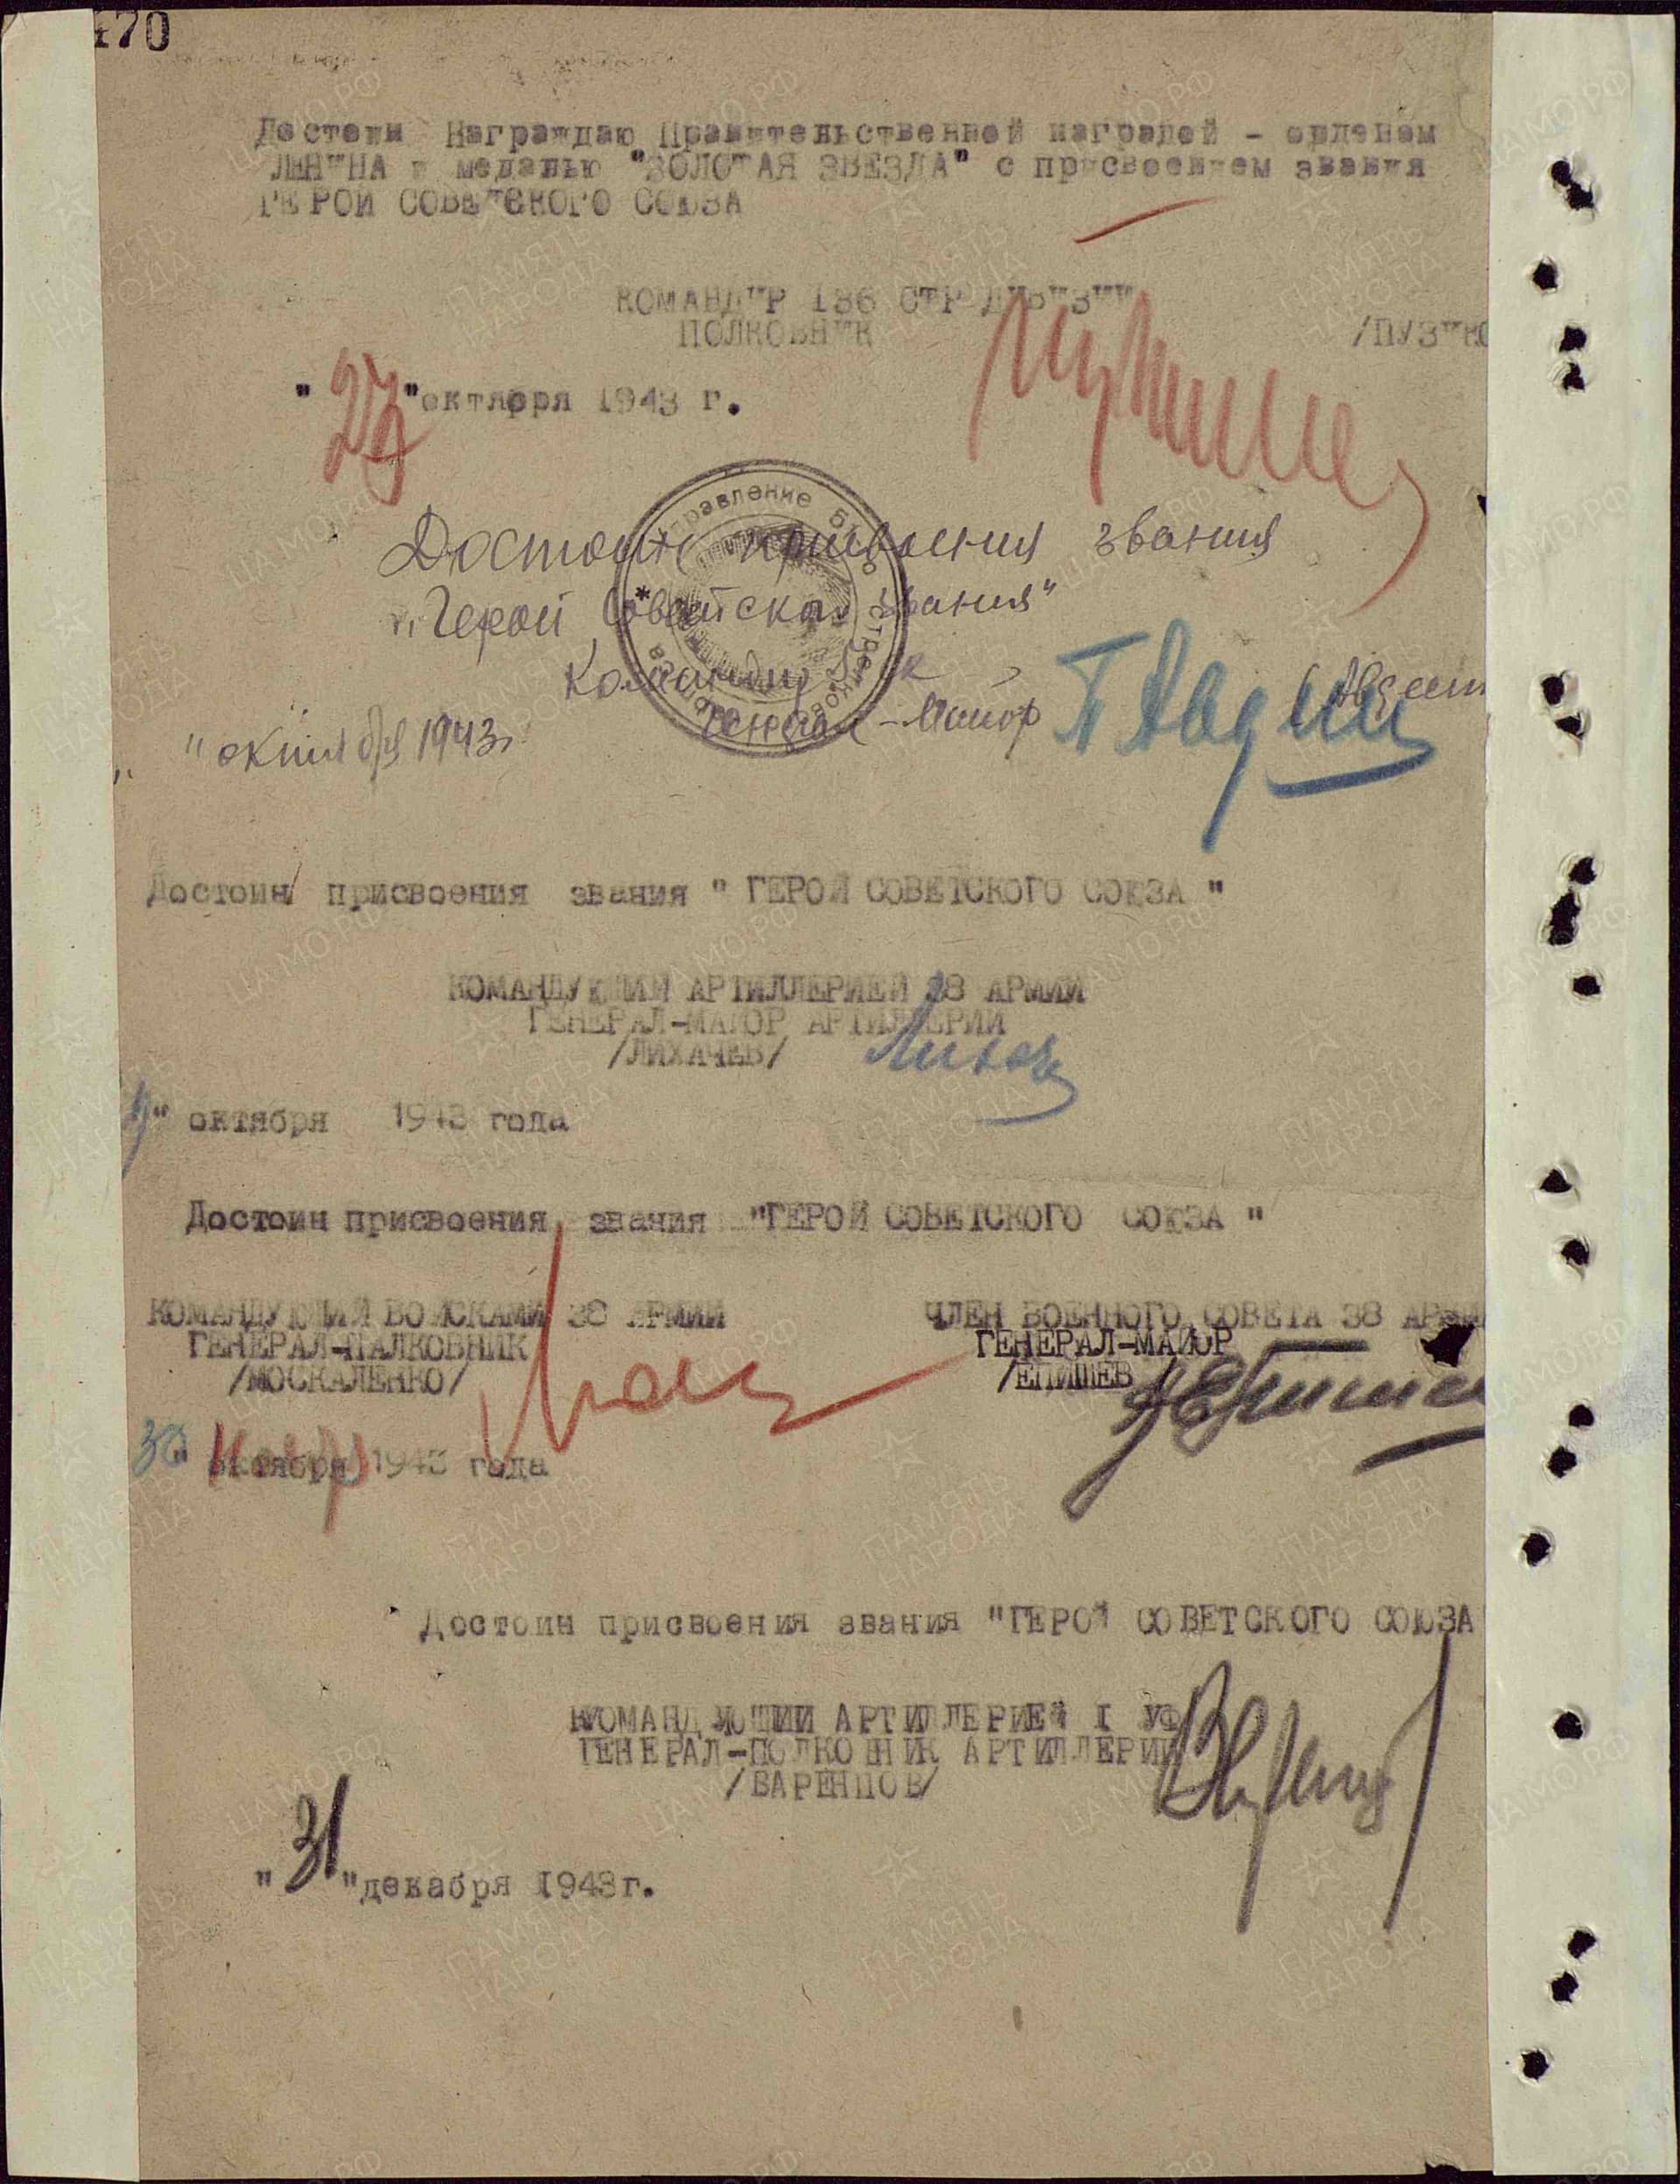 470
Достоин Награждаю Правительственной наградой - орденом
ЛЕНИНА и медалью "ЗОЛОТАЯ ЗВЕЗДА" с присвоением звания
ГЕРОЙ СОВЕТСКОГО СОЮЗА
КОМАНДИР 136 СТР ДИВИЗИИ
ПОЛКОВНИК /ПУЗИКО
"27" октября 1943 г.
Достоин присвоения звания
"Герой Советского звания"
Командир ск
Генерал-Майор
" октября 1943г
Управление 5 го Стрелкового
Достоин присвоения звания " ГЕРОЙ СОВЕТСКОГО СОЮЗА "
КОМАНДУЮЩИЙ АРТИЛЛЕРИЕЙ 38 АРМИИ
ГЕНЕРАЛ-МАЙОР АРТИЛЛЕРИИ
/ЛИХАЧЕВ/
" октября 1943 года
Достоин присвоения звания "ГЕРОЙ СОВЕТСКОГО СОЮЗА "
КОМАНДУЮЩИЙ ВОЙСКАМИ 38 АРМИИ
ГЕНЕРАЛ-ПАЛКОВНИК
/МОСКАЛЕНКО/
ЧЛЕН ВОЕННОГО СОВЕТА 38 АРМИ
ГЕНЕРАЛ-МАЙОР
/ЕПИШЕВ/
30" октября 1943 года
Достоин присвоения звания "ГЕРОЙ СОВЕТСКОГО СОЮЗА
КОМАНДУЮЩИЙ АРТИЛЛЕРИЕЙ I УФ
ГЕНЕРАЛ-ПОЛКОВНИК АРТИЛЛЕРИИ
/ВАРЕНЦОВ/
"31"декабря 1943г.
ПАМЯТЬ
НАРОДА
ЦАМО.РФ